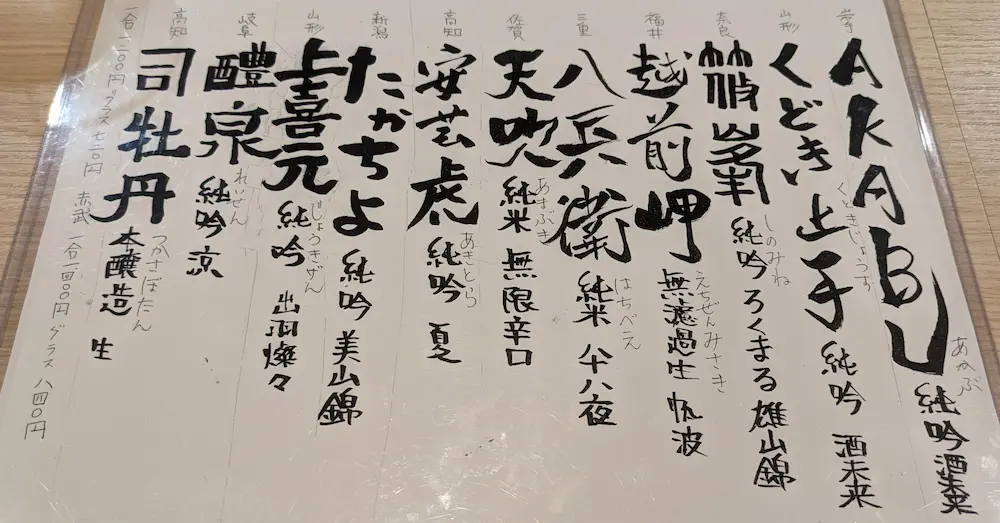 岩手 AKABU あかぶ 純吟 酒未来
山形 くどき上手 くどきじょうず 純吟 酒未来
奈良 篠峯 しのみね 純吟 ろくまる 雄山錦
福井 越前岬 えちぜんみさき 無濾過生 帆波
三重 八兵衛 はちべえ 純米 八十八夜
佐賀 天吹 あまぶき 純米 無限辛口
高知 安芸虎 あきとら 純吟 夏
新潟 たかちよ 純吟 美山錦
山形 上喜元 じょうきげん 純吟 出羽燦々
岐阜 醴泉 れいせん 純吟 涼
高知 司牡丹 つかさぼたん 本醸造 生
一合 一二〇〇円 グラス七二〇円
赤武 一合一四〇〇円 グラス八四〇円